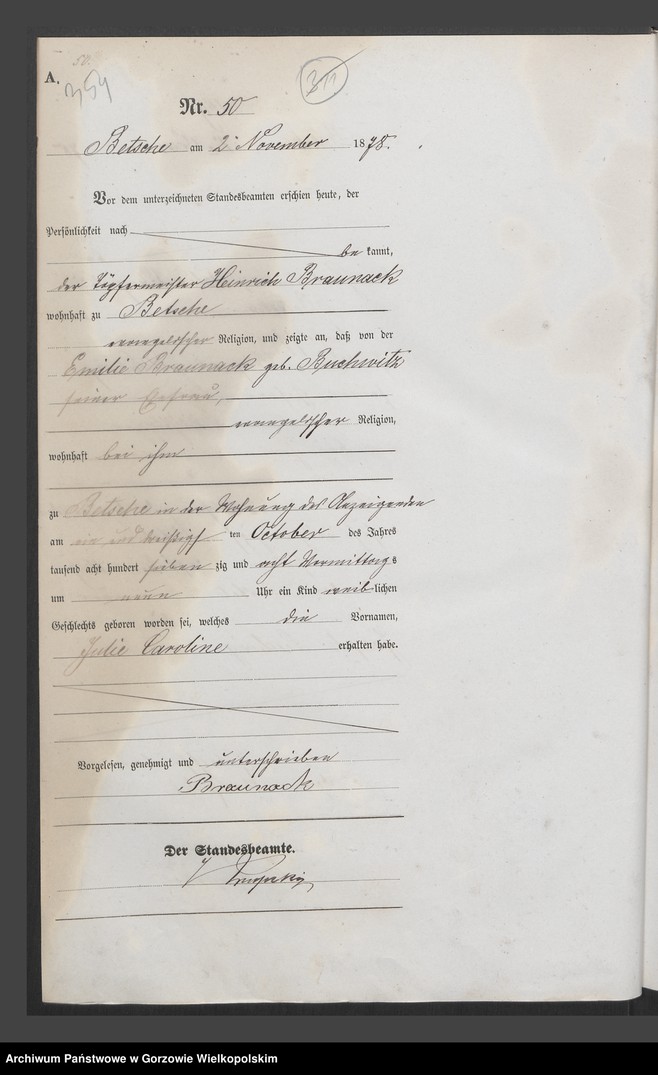 50.
A.
354
311
Nr. 50
Betsche am 2 November 1878.
Vor dem unterzeichneten Standesbeamten erschien heute, der
Persönlichkeit nach
be kannt,
der Töpfermeister Heinrich Braunack
wohnhaft zu Betsche
evangelischer Religion, und zeigte an, daß von der
Emilie Braunack geb. Buchwitz
seiner Ehefrau,
evangelischer Religion,
wohnhaft bei ihm
zu Betsche in der Wohnung des Anzeigenden
am ein und dreißigst ten October des Jahres
tausend acht hundert sieben zig und acht Vormittags
um neun Uhr ein Kind weib-lichen
Geschlechts geboren worden sei, welches die Vornamen,
Julie Caroline erhalten habe.
Vorgelesen, genehmigt und unterschrieben
Braunack
Der Standesbeamte.
Archiwum Państwowe w Gorzowie Wielkopolskim